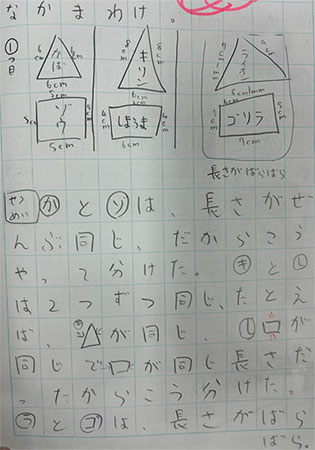 なかまわけ。
①つ目
6cm 6cm かば 6cm
8cm 8cm キリン 6cm
9cm ライオン 8cm1mm
5cm 5cm ゾウ 5cm 5cm
6cm しまうま 6cm
6cm ゴリラ 7cm
長さがばらばら
せつめい かとゾは、長さがぜ
んぶ同じ、だからこう
やって分けた。キとし
は2つずつ同じ、たとえ
ば、△が同じ、し□が
同じで□が同じ長さだ
ったからこう分けた。
ラとゴは、長さがばら
ばら。